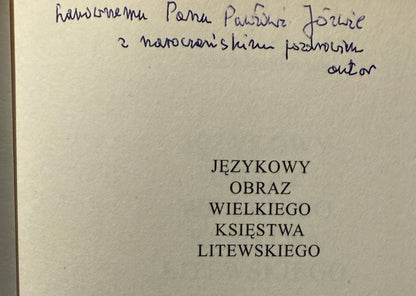 Szanownemu Panu Pawłowi Józwie
z naroczańskim pozdrowieniem
autor
JĘZYKOWY
OBRAZ
WIELKIEGO
KSIĘSTWA
LITEWSKIEGO